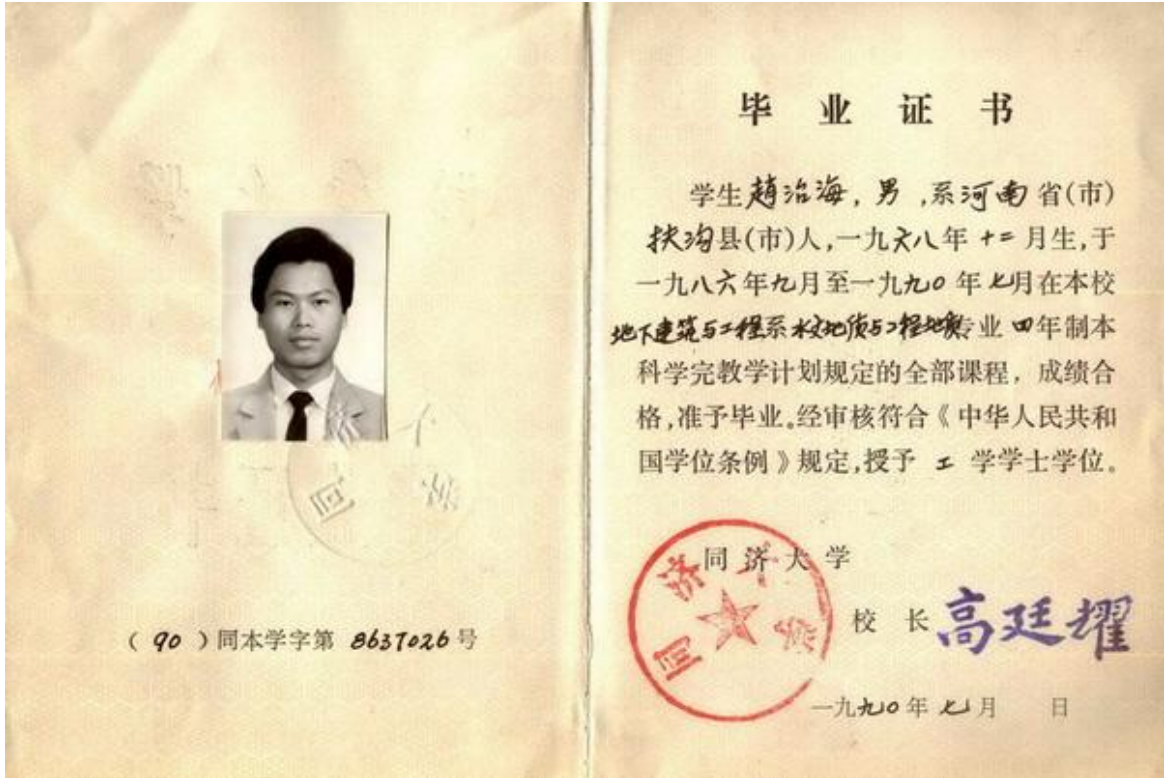 (90)同本学字第 8637026 号
毕业证书
学生趙治海,男,系河南省(市)
扶沟县(市)人,一九六八年十二月生,于
一九八六年九月至一九九〇年七月在本校
地下建筑与工程系水文地质与工程地质专业四年制本
科学完教学计划规定的全部课程,成绩合
格,准予毕业。经审核符合《中华人民共和
国学位条例》规定,授予 工 学学士学位。
同济大学
同济大学
校长 高廷耀
一九九〇年七月 日